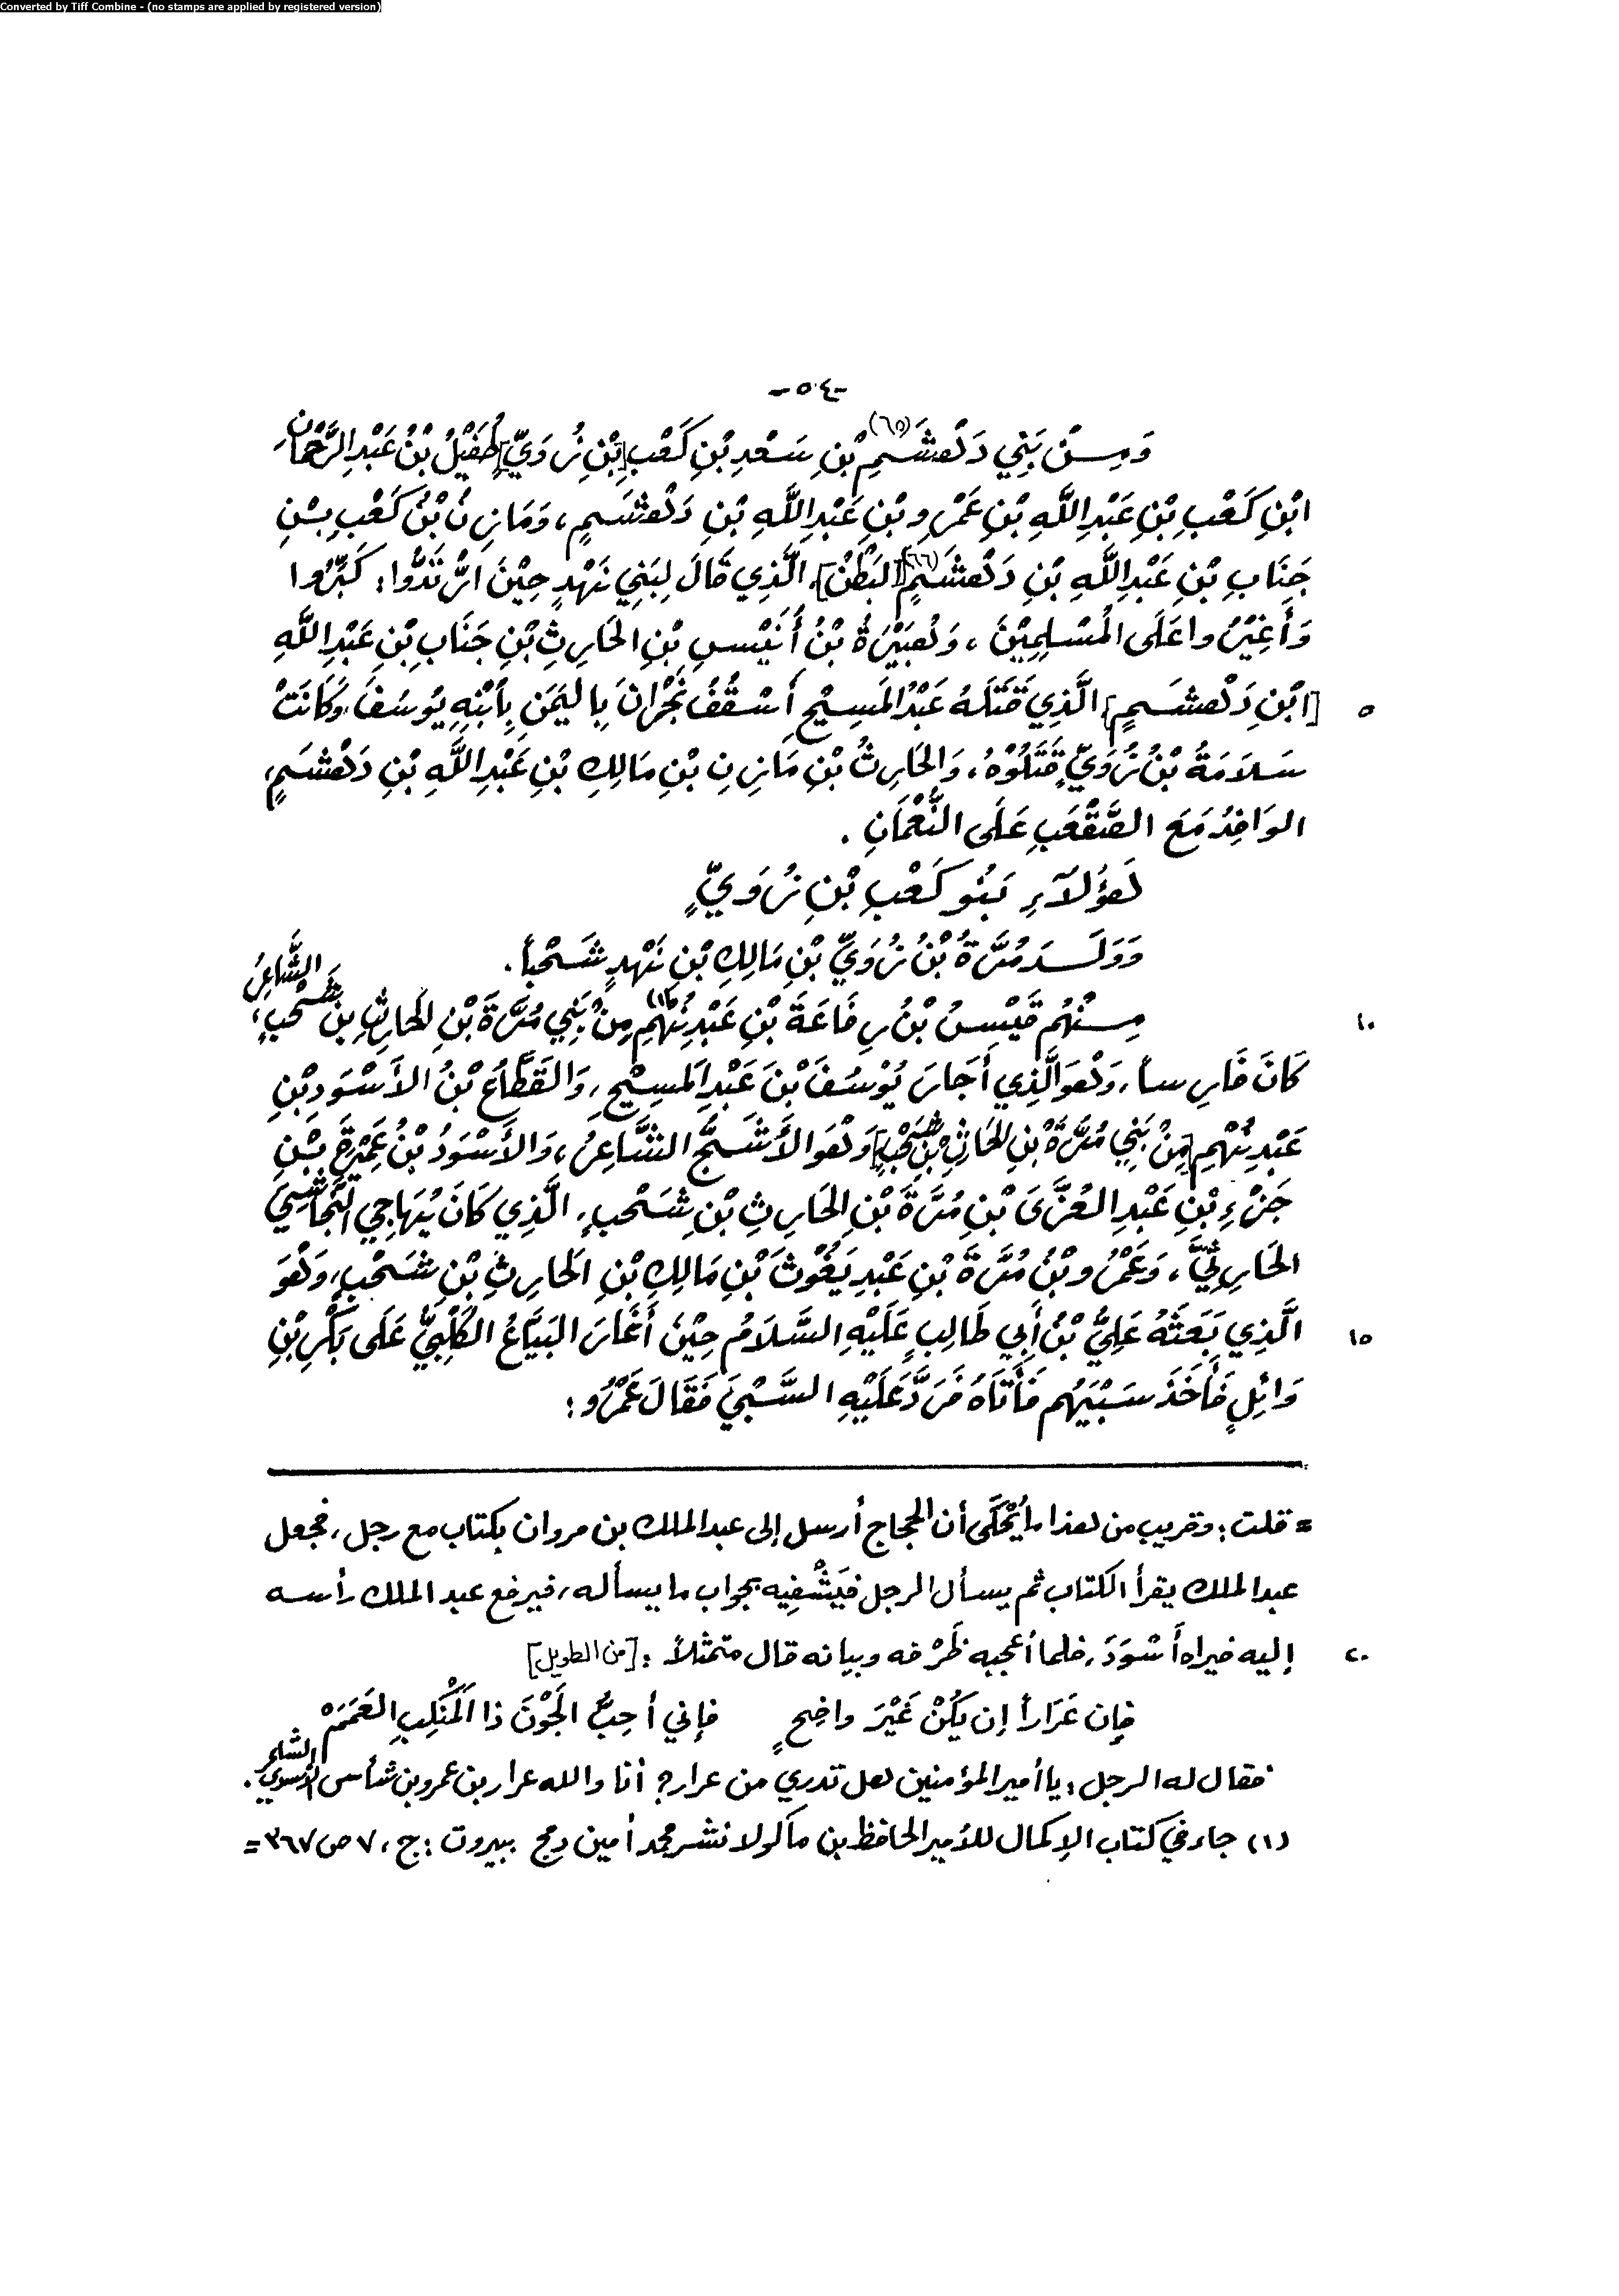 Converted by Tiff Combine - (no stamps are applied by registered version)
-٥٠٤-
وَمِنْ بَنِي دَهْشَمِ(٦٥) بْنِ سَعْدِ بْنِ كَعْبِ [بْنِ زُوَيٍّ] طُفَيْلُ بْنُ عَبْدِ الرَّحْمَانِ
ابْنِ كَعْبِ بْنِ عَبْدِ اللَّهِ بْنِ عَمْرِو بْنِ عَبْدِ اللَّهِ بْنِ دَهْشَمٍ، وَمَازِنُ بْنُ كَعْبِ بْنِ
جَنَابِ بْنِ عَبْدِ اللَّهِ بْنِ دَهْشَمٍ(٦٦) [البَطْنُ]، الَّذِي قَالَ لِبَنِي نَهْدٍ حِيْنَ ارْتَدُّوا: كَبِّرُوا
وَأَغِيْرُوا عَلَى المُسْلِمِيْنَ، وَهُبَيْرَةُ بْنُ أُنَيْسِ بْنِ الحَارِثِ بْنِ جَنَابِ بْنِ عَبْدِ اللَّهِ
[ابْنِ دَهْشَمٍ] الَّذِي قَتَلَهُ عَبْدُ المَسِيْحِ أَسْقُفُ نَجْرَانَ بِاليَمَنِ بِابْنِهِ يُوسُفَ، وَكَانَتْ
٥
سَلَامَةُ بْنُ زُوَيٍّ قَتَلُوْهُ، وَالحَارِثُ بْنِ مَازِنِ بْنِ مَالِكِ بْنِ عَبْدِ اللَّهِ بْنِ دَهْشَمٍ،
الوَافِدُ مَعَ الصَّقْعَبِ عَلَى النُّعْمَانِ.
هَؤُلَاءِ بَنُو كَعْبِ بْنِ زُوَيٍّ
وَوَلَدَ مُرَّةُ بْنُ زُوَيِّ بْنِ مَالِكِ بْنِ نَهْدٍ شَحْباً.
مِنْهُم قَيْسُ بْنُ رِفَاعَةَ بْنِ عَبْدِ نُهْمٍ(١) مِنْ بَنِي مُرَّةَ بْنِ الحَارِثِ بْنِ شَحْبٍ، الشَّاعِرُ
١٠
كَانَ فَارِساً، وَهُوَ الَّذِي أَجَارَ يُوْسُفَ بْنَ عَبْدِ المَسِيْحِ، وَالقَطَّاعُ بْنُ الأَسْوَدِ بْنِ
عَبْدِ نُهْمٍ [مِنْ بَنِي مُرَّةَ بْنِ الحَارِثِ بْنِ شَحْبٍ] وَهُوَ الأَشَجُّ الشَّاعِرُ، وَالأَسْوَدُ بْنُ عَمِيْرَةَ بْنِ
جَزْءِ بْنِ عَبْدِ العُزَّى بْنِ مُرَّةَ بْنِ الحَارِثِ بْنِ شَحْبٍ، الَّذِي كَانَ يُهَاجِي النَّجَاشِيَّ
الحَارِثِيَّ، وَعَمْرُو بْنُ مُرَّةَ بْنِ عَبْدِ يَغُوْثَ بْنِ مَالِكِ بْنِ الحَارِثِ بْنِ شَحْبٍ، وَهُوَ
الَّذِي بَعَثَهُ عَلِيُّ بْنُ أَبِي طَالِبٍ عَلَيْهِ السَّلَامُ حِيْنَ أَغَارَ البَيَّاعُ الكَلْبِيُّ عَلَى بَكْرِ بْنِ
١٥
وَائِلٍ فَأَخَذَ سَبْيَهُم فَأَتَاهُ فَرَدَّ عَلَيْهِ السَّبْيَ فَقَالَ عَمْرُو:
= قلت: وقريب من هذا ما يُحْكَى أن الحجاج أرسل إلى عبد الملك بن مروان بكتاب مع رجل، فجعل
عبد الملك يقرأ الكتاب ثم يسأل الرجل فيَشْفِيه بجواب ما يسأله، فيرفع عبد الملك رأسه
إليه فيراه أَسْوَدَ، فلما أعجبه ظَرْفه وبيانه قال متمثلاً: [من الطويل]
٢٠
فإن عَرَاراً إن يكُنْ غَيْرَ واضِحٍ فإني أحِبُّ الجَوْنَ ذا المَنْكِبِ العَمَمْ
فقال له الرجل: يا أمير المؤمنين هل تدري من عرار؟ أنا والله عرار بن عمرو بن شأس الأسدي الشاعر.
(١) جاء في كتاب الإكمال للأمير الحافظ بن ماكولا نشر محمد أمين دمج ببيروت: ج، ٧ ص ٣٦٧ =